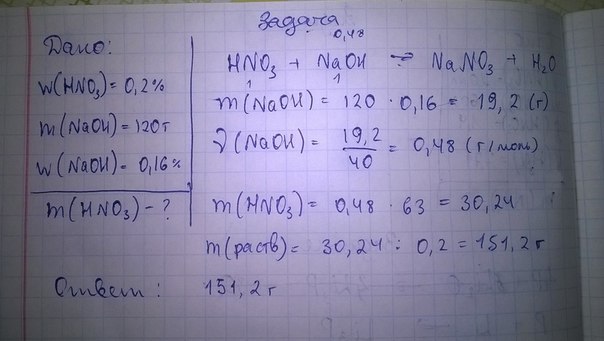 Задача
Дано:
w(HNO3) = 0,2%
m(NaOH) = 120 г
w(NaOH) = 0,16%
m(HNO3) - ?
0,48
HNO3 + NaOH → NaNO3 + H2O
1 1
m(NaOH) = 120 · 0,16 = 19,2 (г)
ν(NaOH) = 19,2/40 = 0,48 (г/моль)
m(HNO3) = 0,48 · 63 = 30,24
m(раств) = 30,24 : 0,2 = 151,2 г
Ответ: 151,2 г